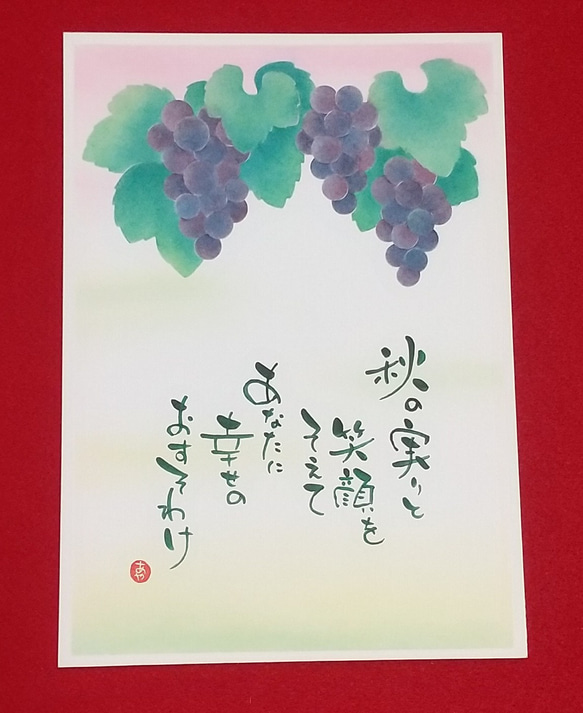 秋の実りと
笑顔を
そえて
あなたに
幸せの
おすそわけ
あや